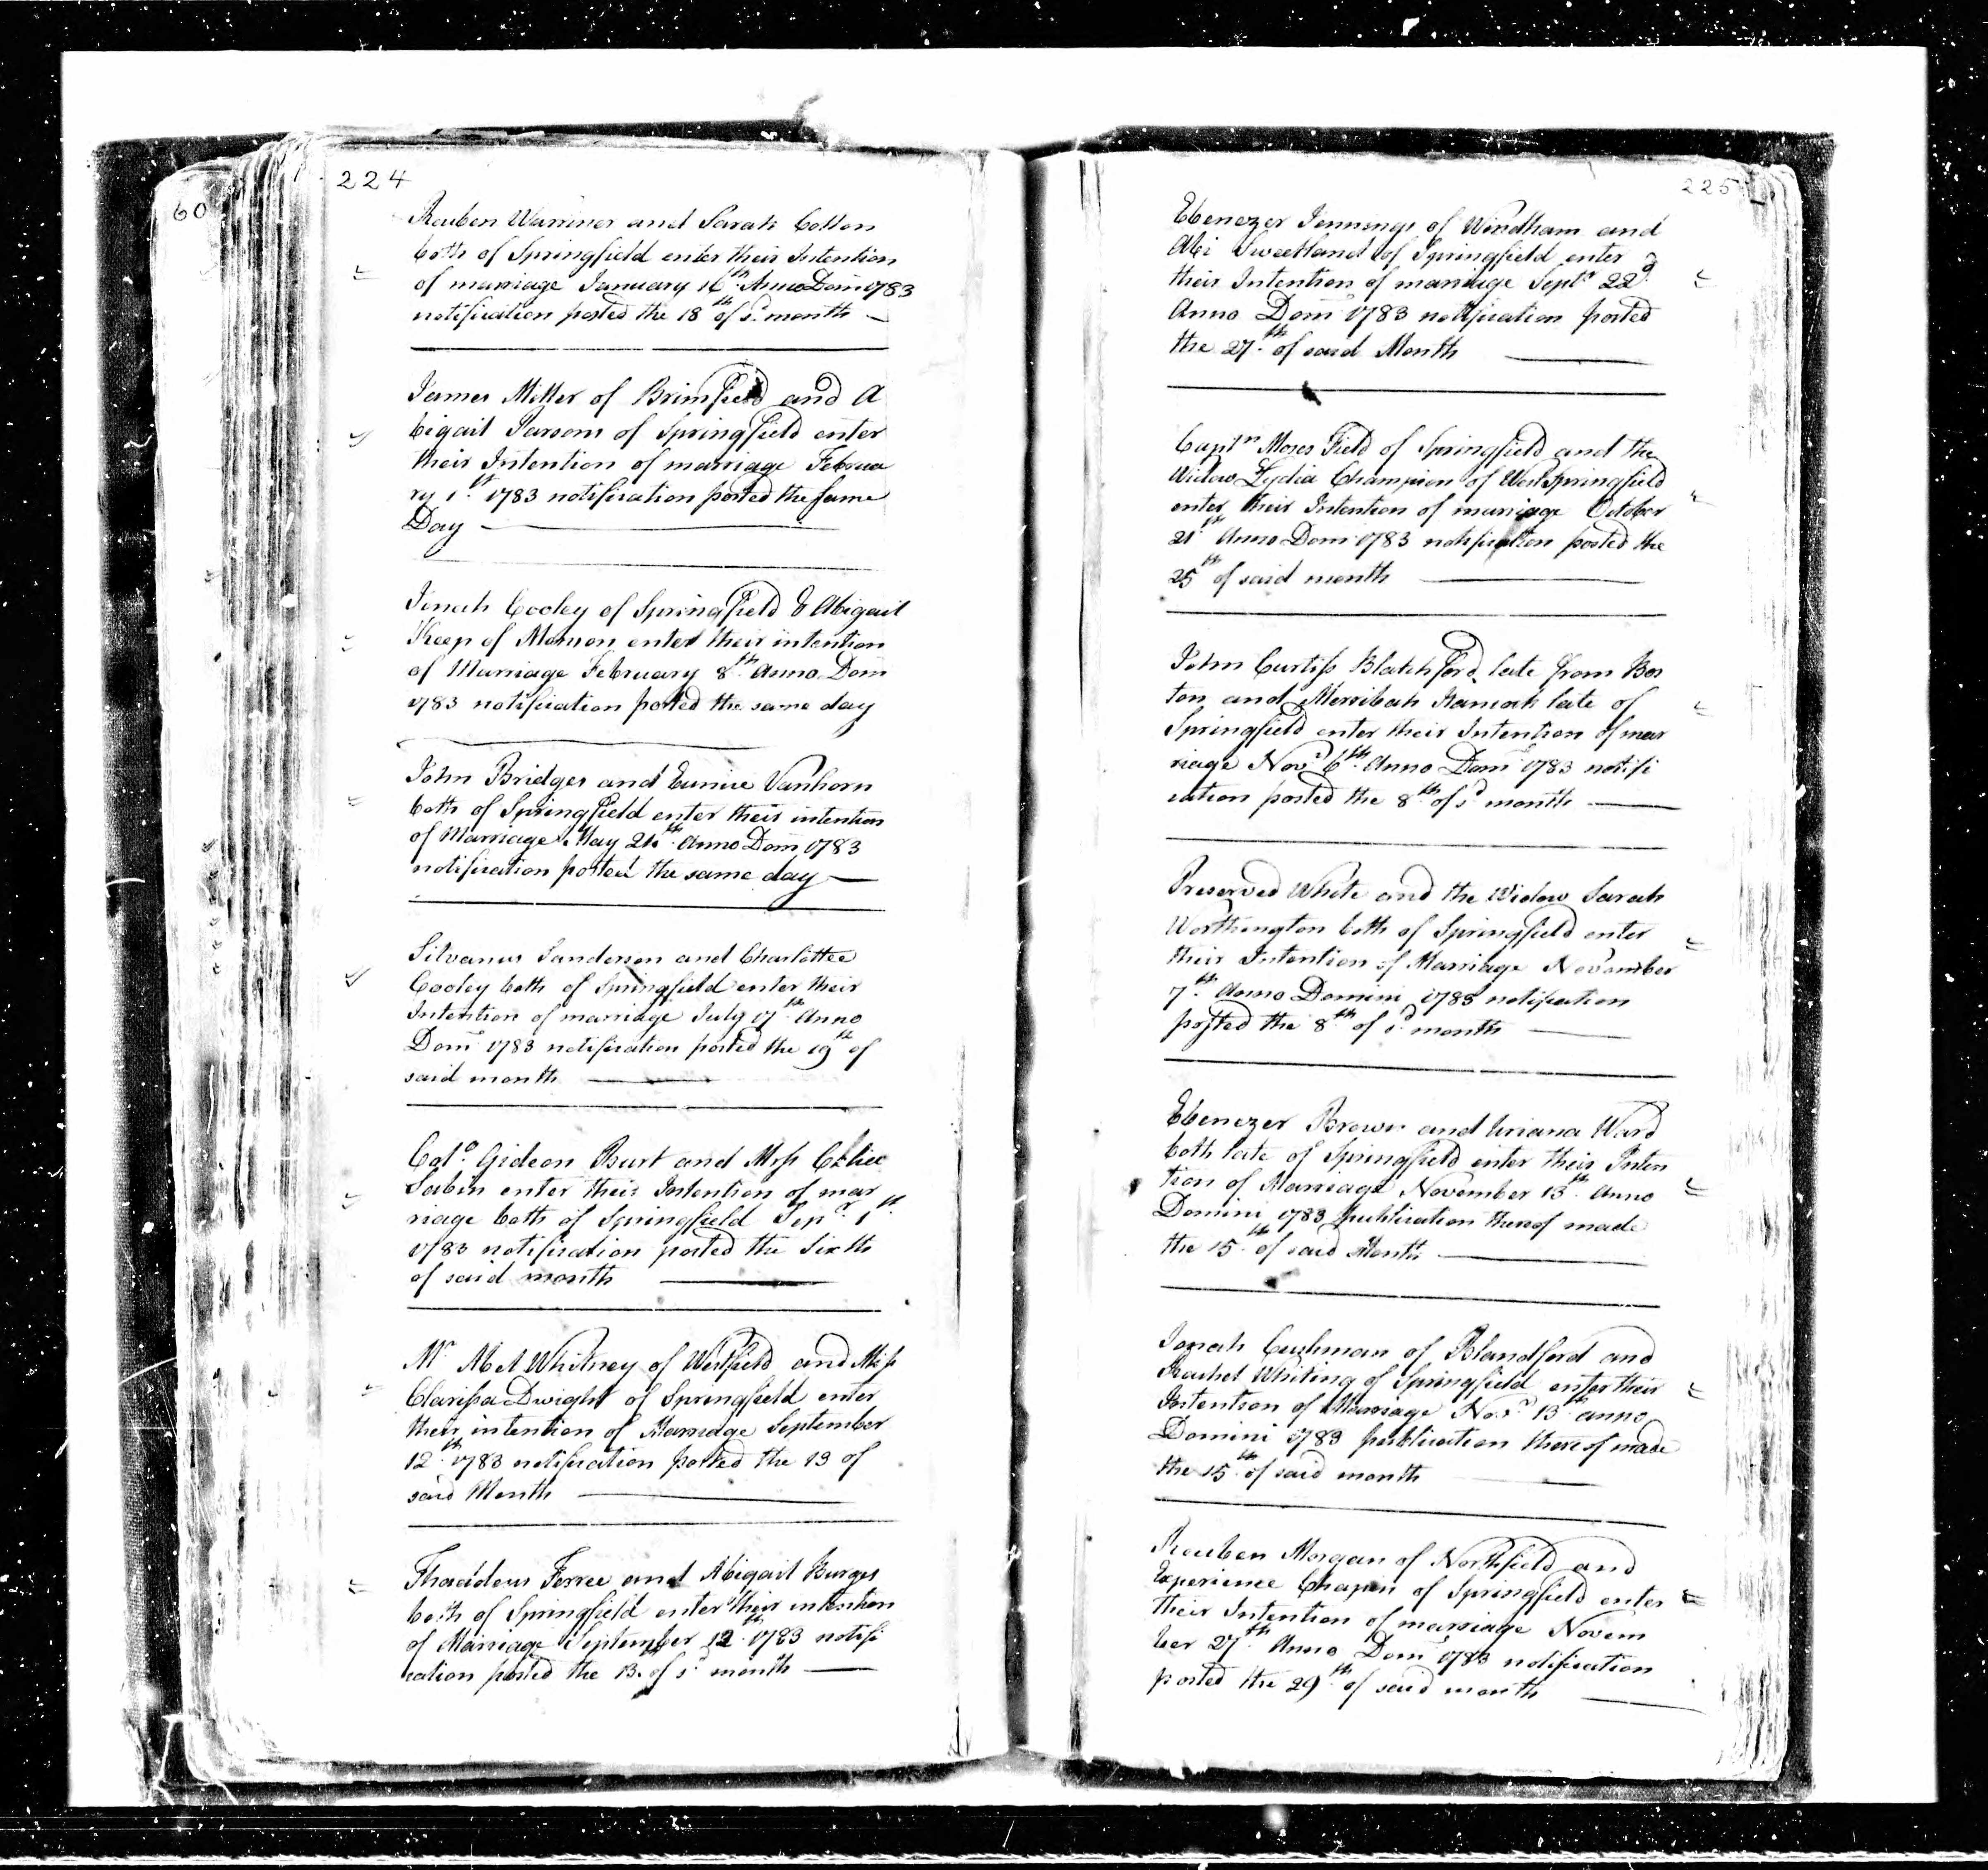 224
60
Reuben Warriner and Sarah Cotton
both of Springfield enter their Intention
of marriage January 16th Anno Dom 1783
notification posted the 18th of sd month
James Miller of Brimfield and A
bigail Parsons of Springfield enter
their Intention of marriage Februa
ry 1st 1783 notification posted the same
Day
Jonah Cooley of Springfield & Abigail
Keep of Monson enter their intention
of Marriage February 8th Anno Dom
1783 notification posted the same day
John Bridges and Eunice Vanhorn
both of Springfield enter their intention
of Marriage May 24th Anno Dom 1783
notification posted the same day
Silvanus Sanderson and Charlottee
Cooley both of Springfield enter their
Intention of marriage July 17th Anno
Dom 1783 notification posted the 19th of
said month
Colo Gideon Burt and Mrs
Sabin enter their Intention of mar
riage both of Springfield Sepr 1st
1783 notification posted the sixth
of said month
Mr Abel Whitney of Westfield and Miss
Clarissa Dwight of Springfield enter
their intention of Marriage September
12th 1783 notification posted the 13 of
said Month
Thaddeus Ferree and Abigail Burges
both of Springfield enter their intention
of Marriage September 12th 1783 notifi
cation posted the 13th of sd month
225
Ebenezer Jennings of Windham and
Abi Sweetland of Springfield enter
their Intention of marriage Septr 22d
Anno Dom 1783 notification posted
the 27th of said Month
Captn Moses Field of Springfield and the
Widow Lydia Champion of West Springfield
enter their Intention of marriage October
21st Anno Dom 1783 notification posted the
25th of said month
John Curtiss Blatchford late from Bos
ton and Merribah late of
Springfield enter their Intention of mar
riage Novr 6th Anno Dom 1783 notifi
cation posted the 8th of sd month
Preserved White and the Widow Sarah
Worthington both of Springfield enter
their Intention of Marriage November
7th Anno Domini 1783 notification
posted the 8th of sd month
Ebenezer Brown and Uriana Ward
both late of Springfield enter their Inten
tion of Marriage November 13th Anno
Domini 1783 publication thereof made
the 15th of said Month
Jonah Cushman of Blandford and
Rachel Whiting of Springfield enter their
Intention of Marriage Novr 13th anno
Domini 1783 publication thereof made
the 15th of said month
Reuben Morgan of Northfield and
Experience Chapin of Springfield enter
their Intention of marriage Novem
ber 27th Anno Dom 1783 notification
posted the 29th of said month